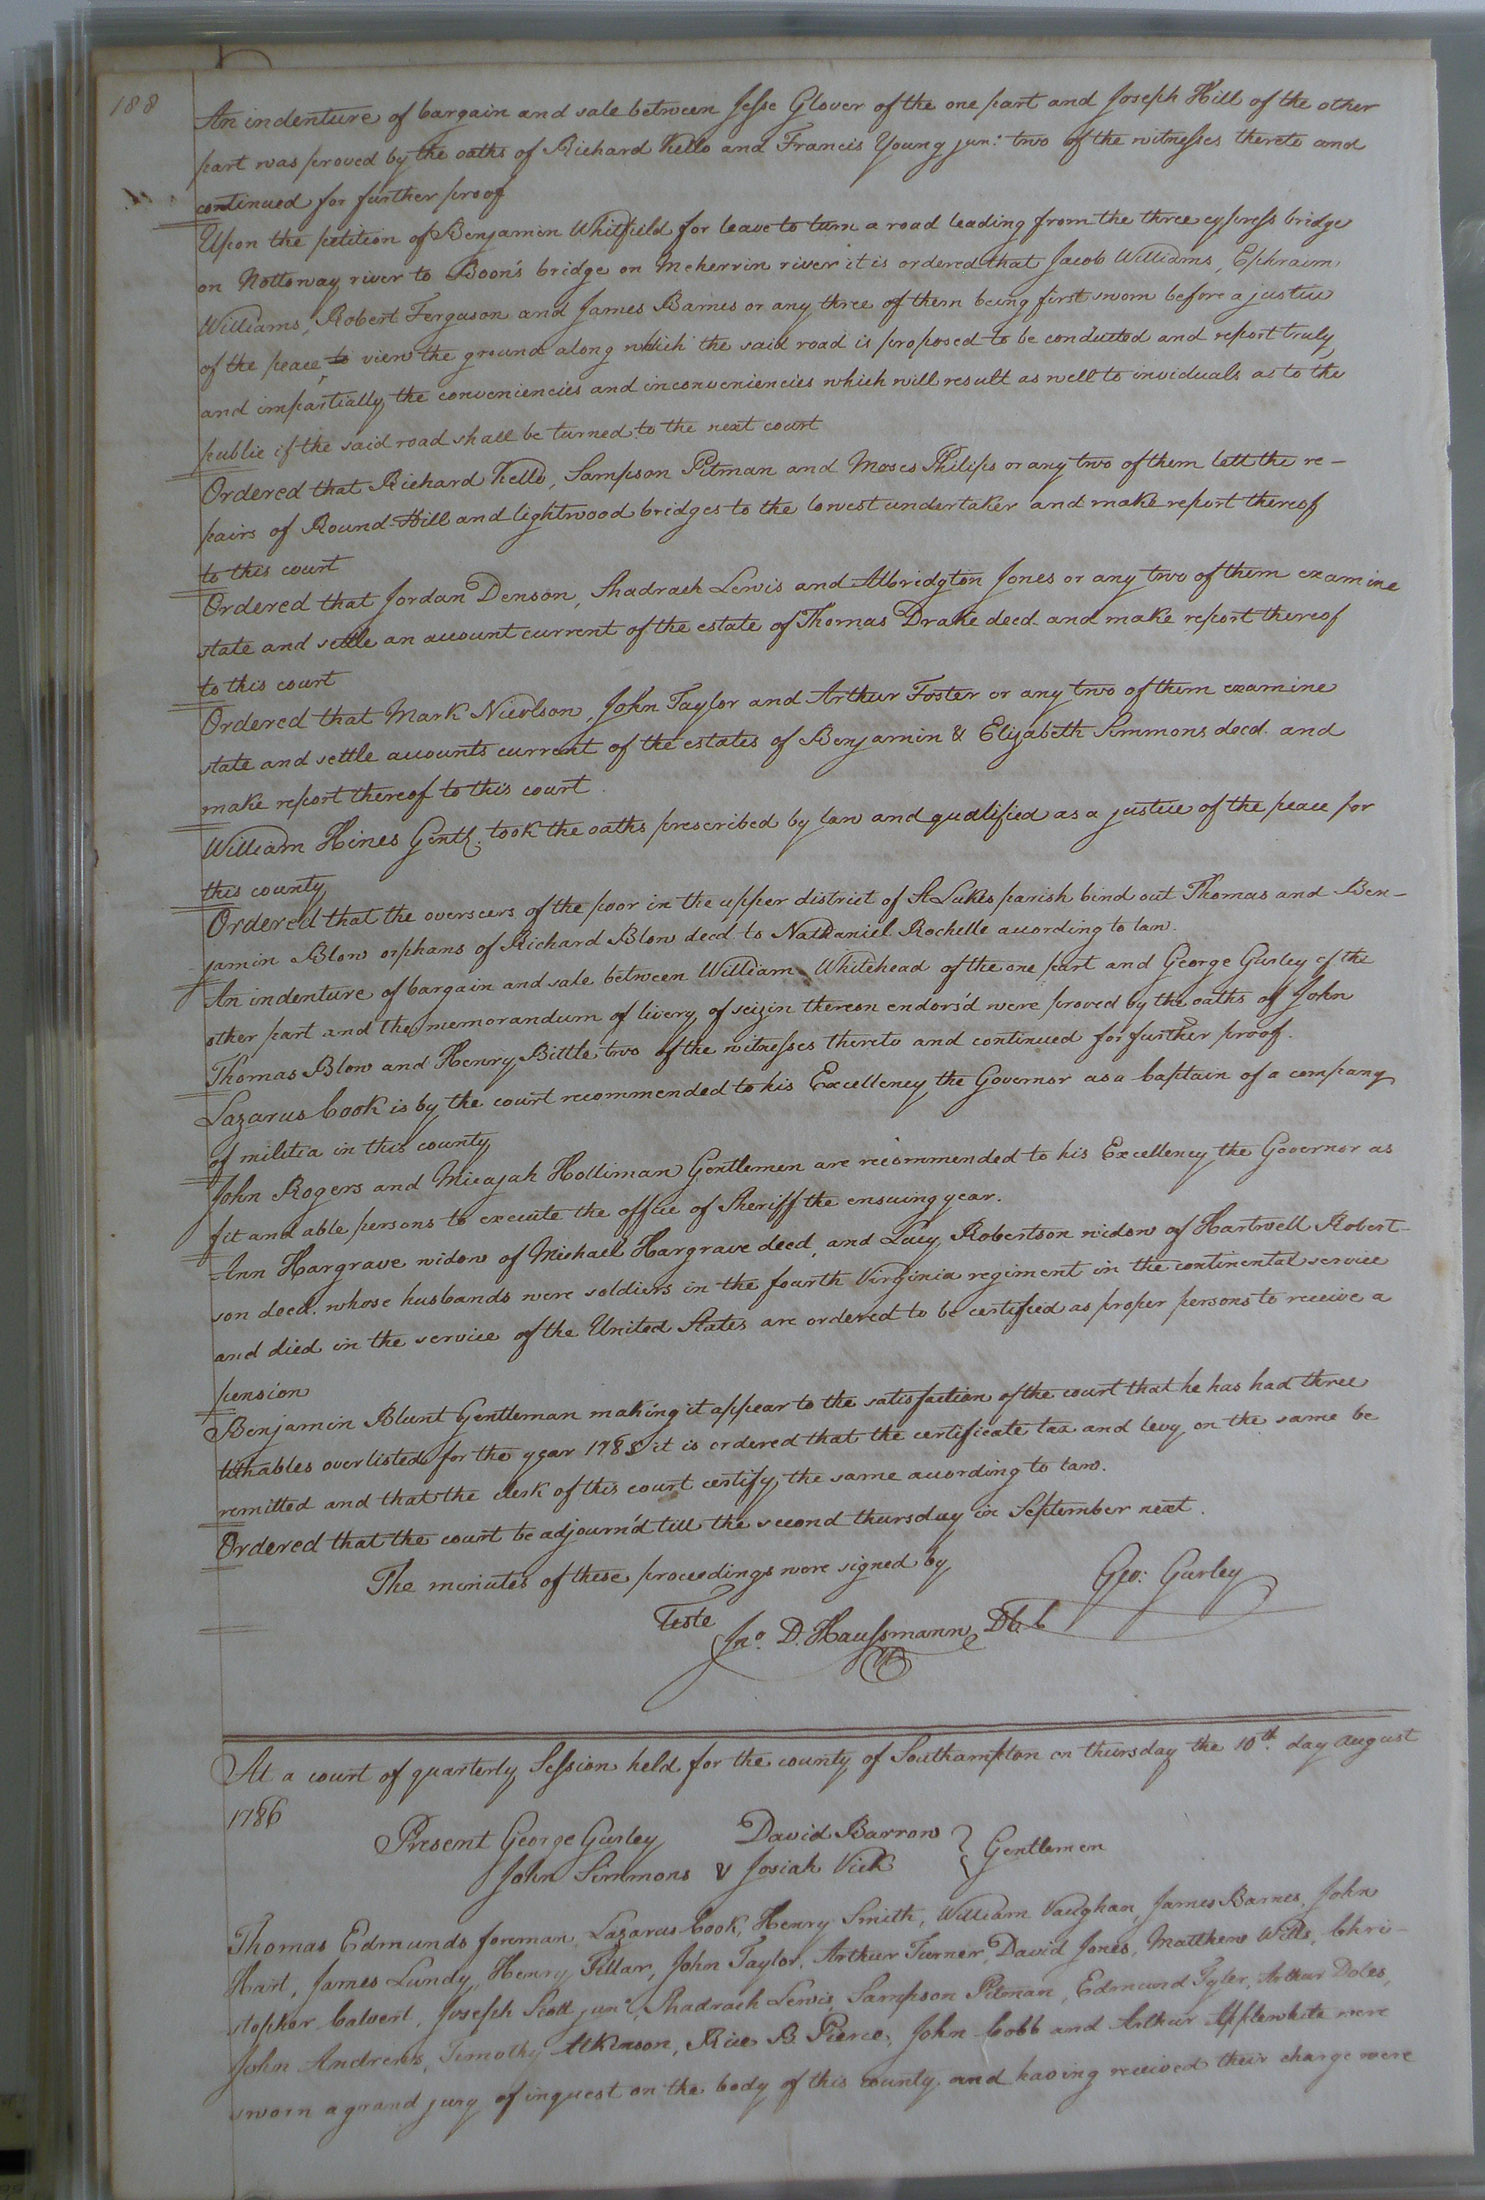 188
An indenture of bargain and sale between Jesse Glover of the one part and Joseph Hill of the other
part was proved by the oaths of Richard Kello and Francis Young junr. two of the witnesses thereto and
continued for further proof
Upon the petition of Benjamin Whitfield for leave to turn a road leading from the three cypress bridge
on Nottoway river to Boon's bridge on Meherrin river it is ordered that Jacob Williams, Ephraim
Williams, Robert Ferguson and James Barnes or any three of them being first sworn before a justice
of the peace to view the ground along which the said road is proposed to be conducted and report truly
and impartially the conveniencies and inconveniencies which will result as well to inviduals as to the
public if the said road shall be turned to the next court
Ordered that Richard Kello, Sampson Pitman and Moses Philips or any two of them lett the re-
pairs of Round-Hill and lightwood bridges to the lowest undertaker and make report thereof
to this court
Ordered that Jordan Denson, Shadrach Lewis and Albridgton Jones or any two of them examine
state and settle an account current of the estate of Thomas Drake decd. and make report thereof
to this court
Ordered that Mark Nicolson, John Taylor and Arthur Foster or any two of them examine
state and settle accounts current of the estates of Benjamin & Elizabeth Simmons decd. and
make report thereof to this court
William Hines Gentl. took the oaths prescribed by law and qualified as a justice of the peace for
this county
Ordered that the overseers of the poor in the upper district of St Lukes parish bind out Thomas and Ben-
jamin Blow orphans of Richard Blow decd. to Nathaniel Rochelle according to law.
An indenture of bargain and sale between William Whitehead of the one part and George Gurley of the
other part and the memorandum of livery of seizin thereon endors'd were proved by the oaths of John
Thomas Blow and Henry Bittle two of the witnesses thereto and continued for further proof.
Lazarus Cook is by the court recommended to his Excellency the Governor as a Captain of a company
of militia in this county
John Rogers and Micajah Holliman Gentlemen are recommended to his Excellency the Governor as
fit and able persons to execute the office of Sheriff the ensuing year.
Ann Hargrave widow of Michael Hargrave decd, and Lucy Robertson widow of Hartwell Robert-
son decd. whose husbands were soldiers in the fourth Virginia regiment in the continental service
and died in the service of the United States are ordered to be certified as proper persons to receive a
pension
Benjamin Blunt Gentleman making it appear to the satisfaction of the court that he has had three
tithables overlisted for the year 1785 it is ordered that the certificate tax and levy on the same be
remitted and that the clerk of this court certify the same according to law.
Ordered that the court be adjourn'd till the second thursday in September next.
The minutes of these proceedings were signed by
Geo: Gurley
Teste
Jno. D. Haussmann D
At a court of quarterly Session held for the county of Southampton on thursday the 10th. day august
1786
Present George Gurley David Barrow
John Simmons & Josiah Vick } Gentlemen
Thomas Edmunds foreman, Lazarus Cook, Henry Smith, William Vaughan, James Barnes, John
Hart, James Lundy, Henry Pillar, John Taylor, Arthur Turner, David Jones, Matthew Wills, Chri-
stopher Calvert, Joseph Scott junr, Shadrach Lewis, Sampson Pitman, Edmund Tyler, Arthur Doles,
John Andrews, Timothy Atkinson, Rice B. Pierce, John Cobb and Arthur Applewhite were
sworn a grand jury of inquest on the body of this county and having received their charge were